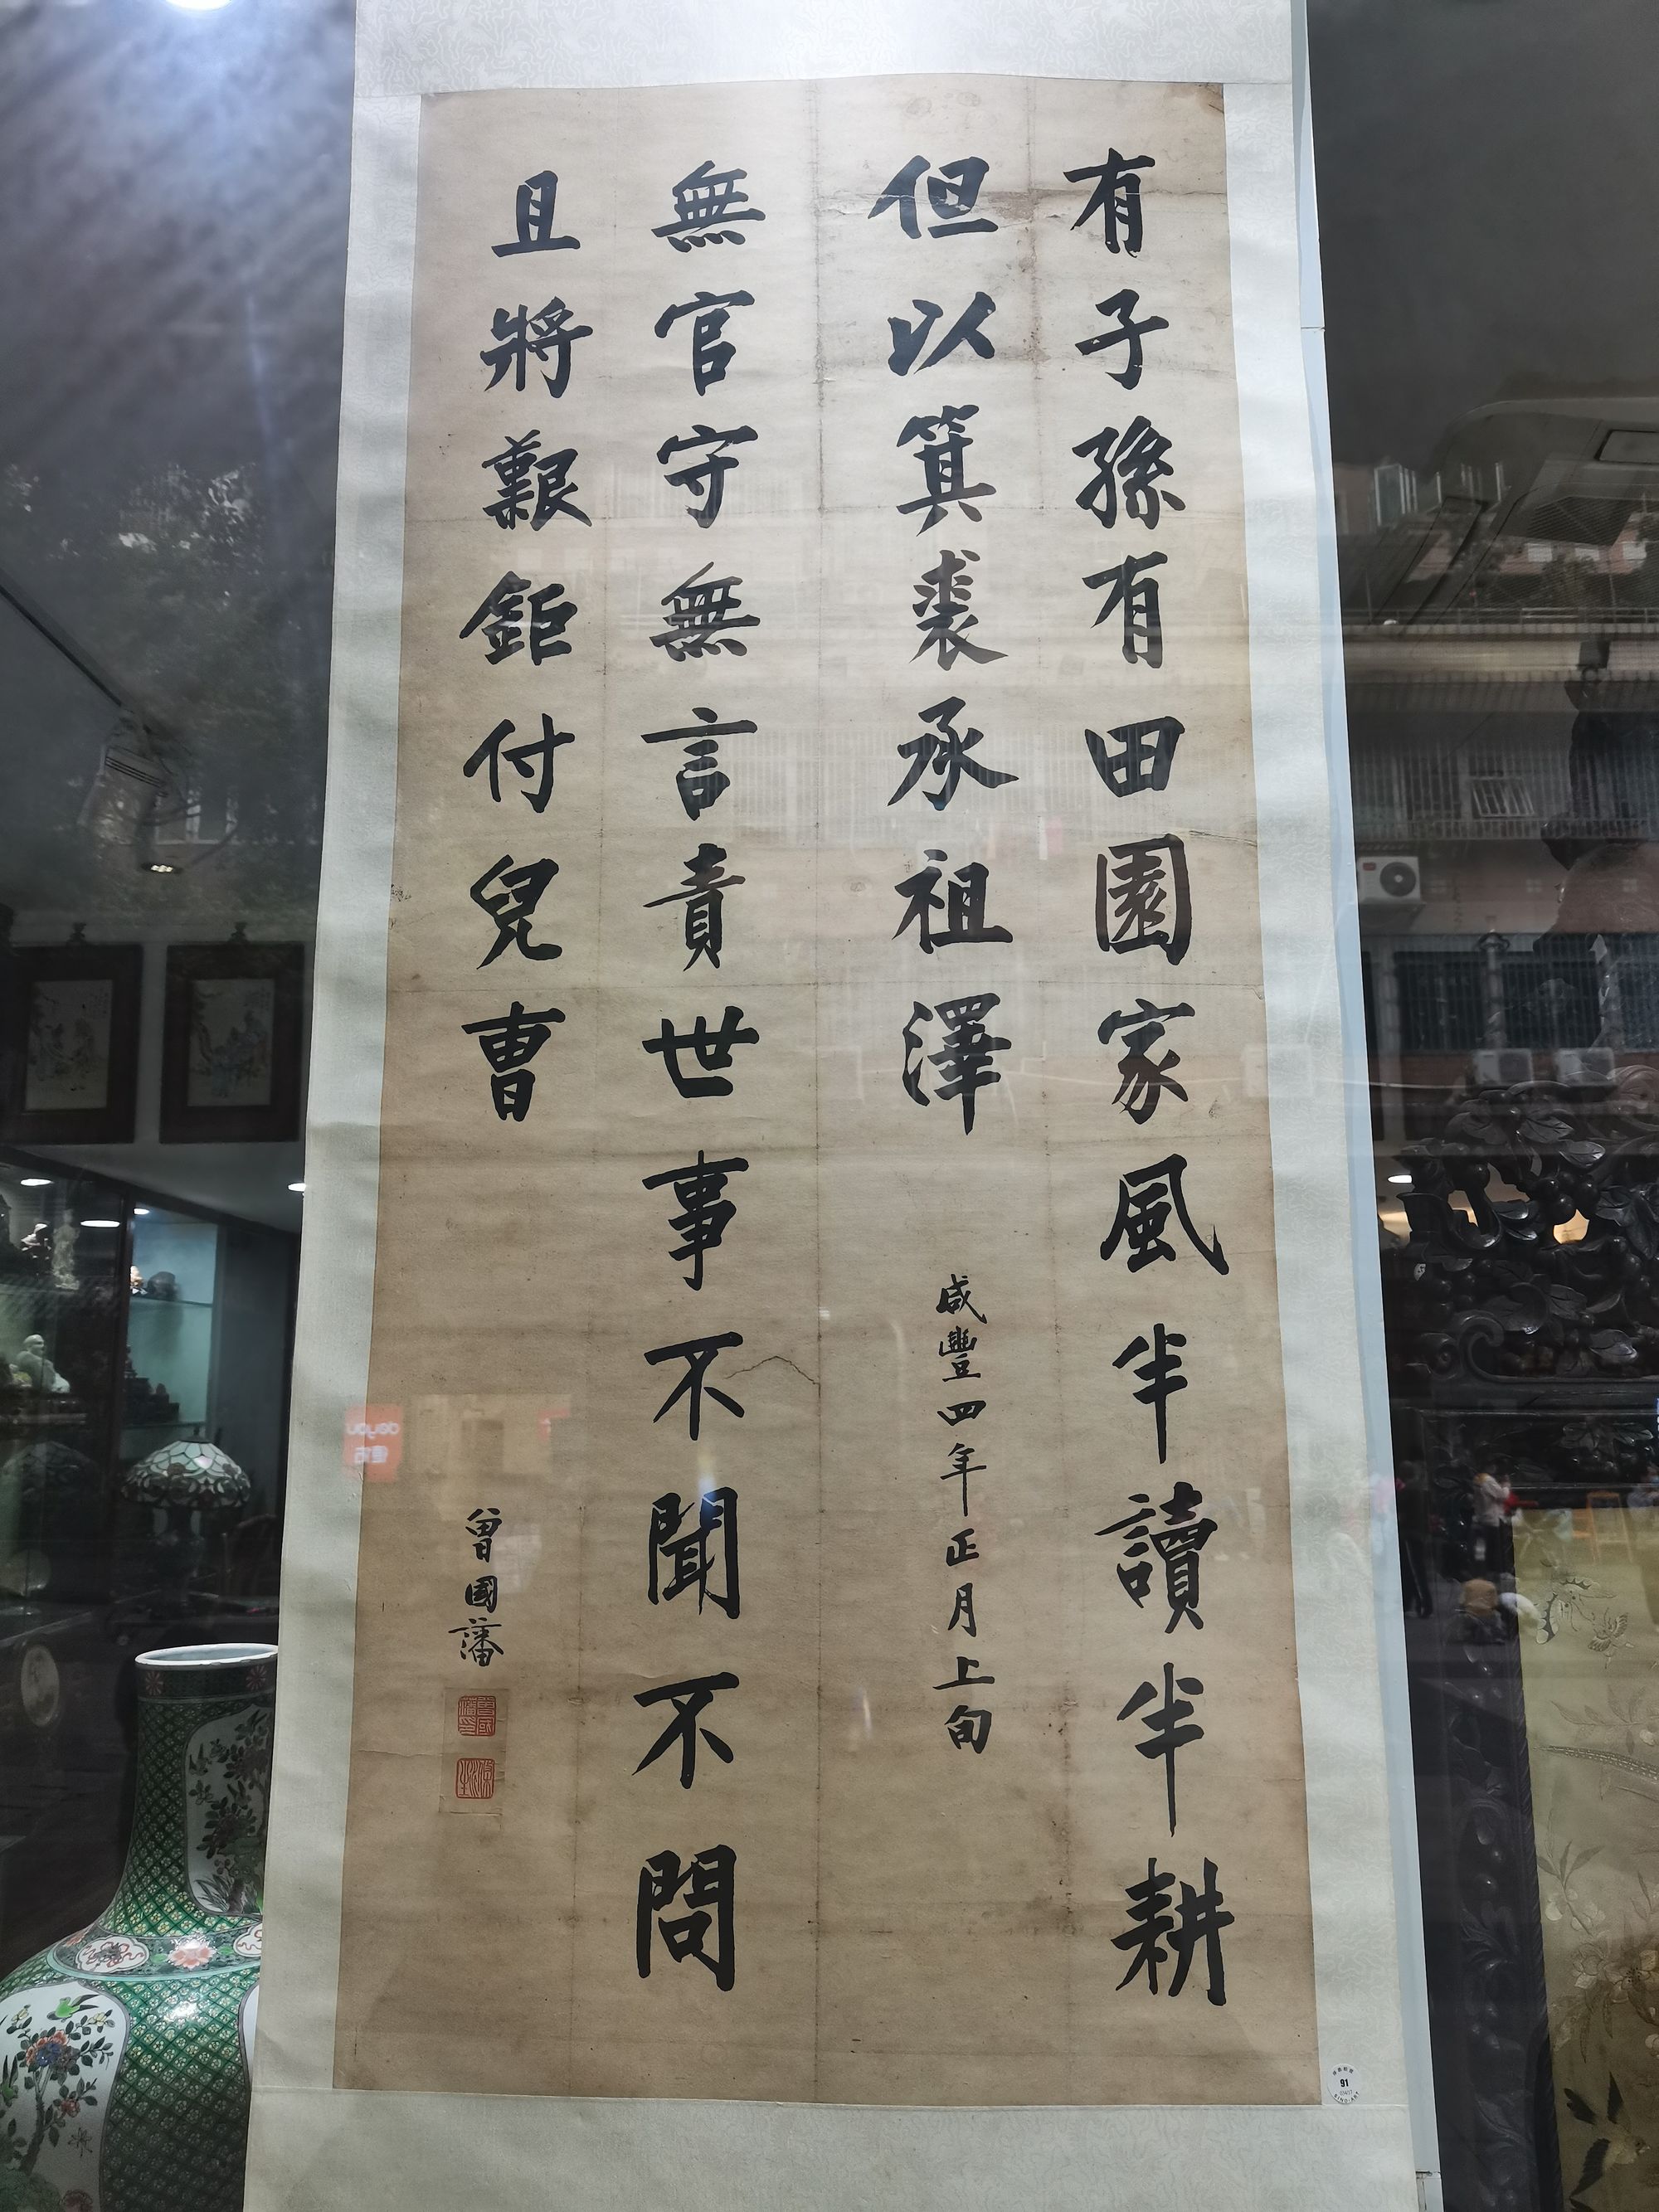 有子孫有田園家風半讀半耕
但以箕裘承祖澤
咸豐四年正月上旬
無官守無言責世事不聞不問
且將艱鉅付兒曹
曾國藩
曾國藩印
91